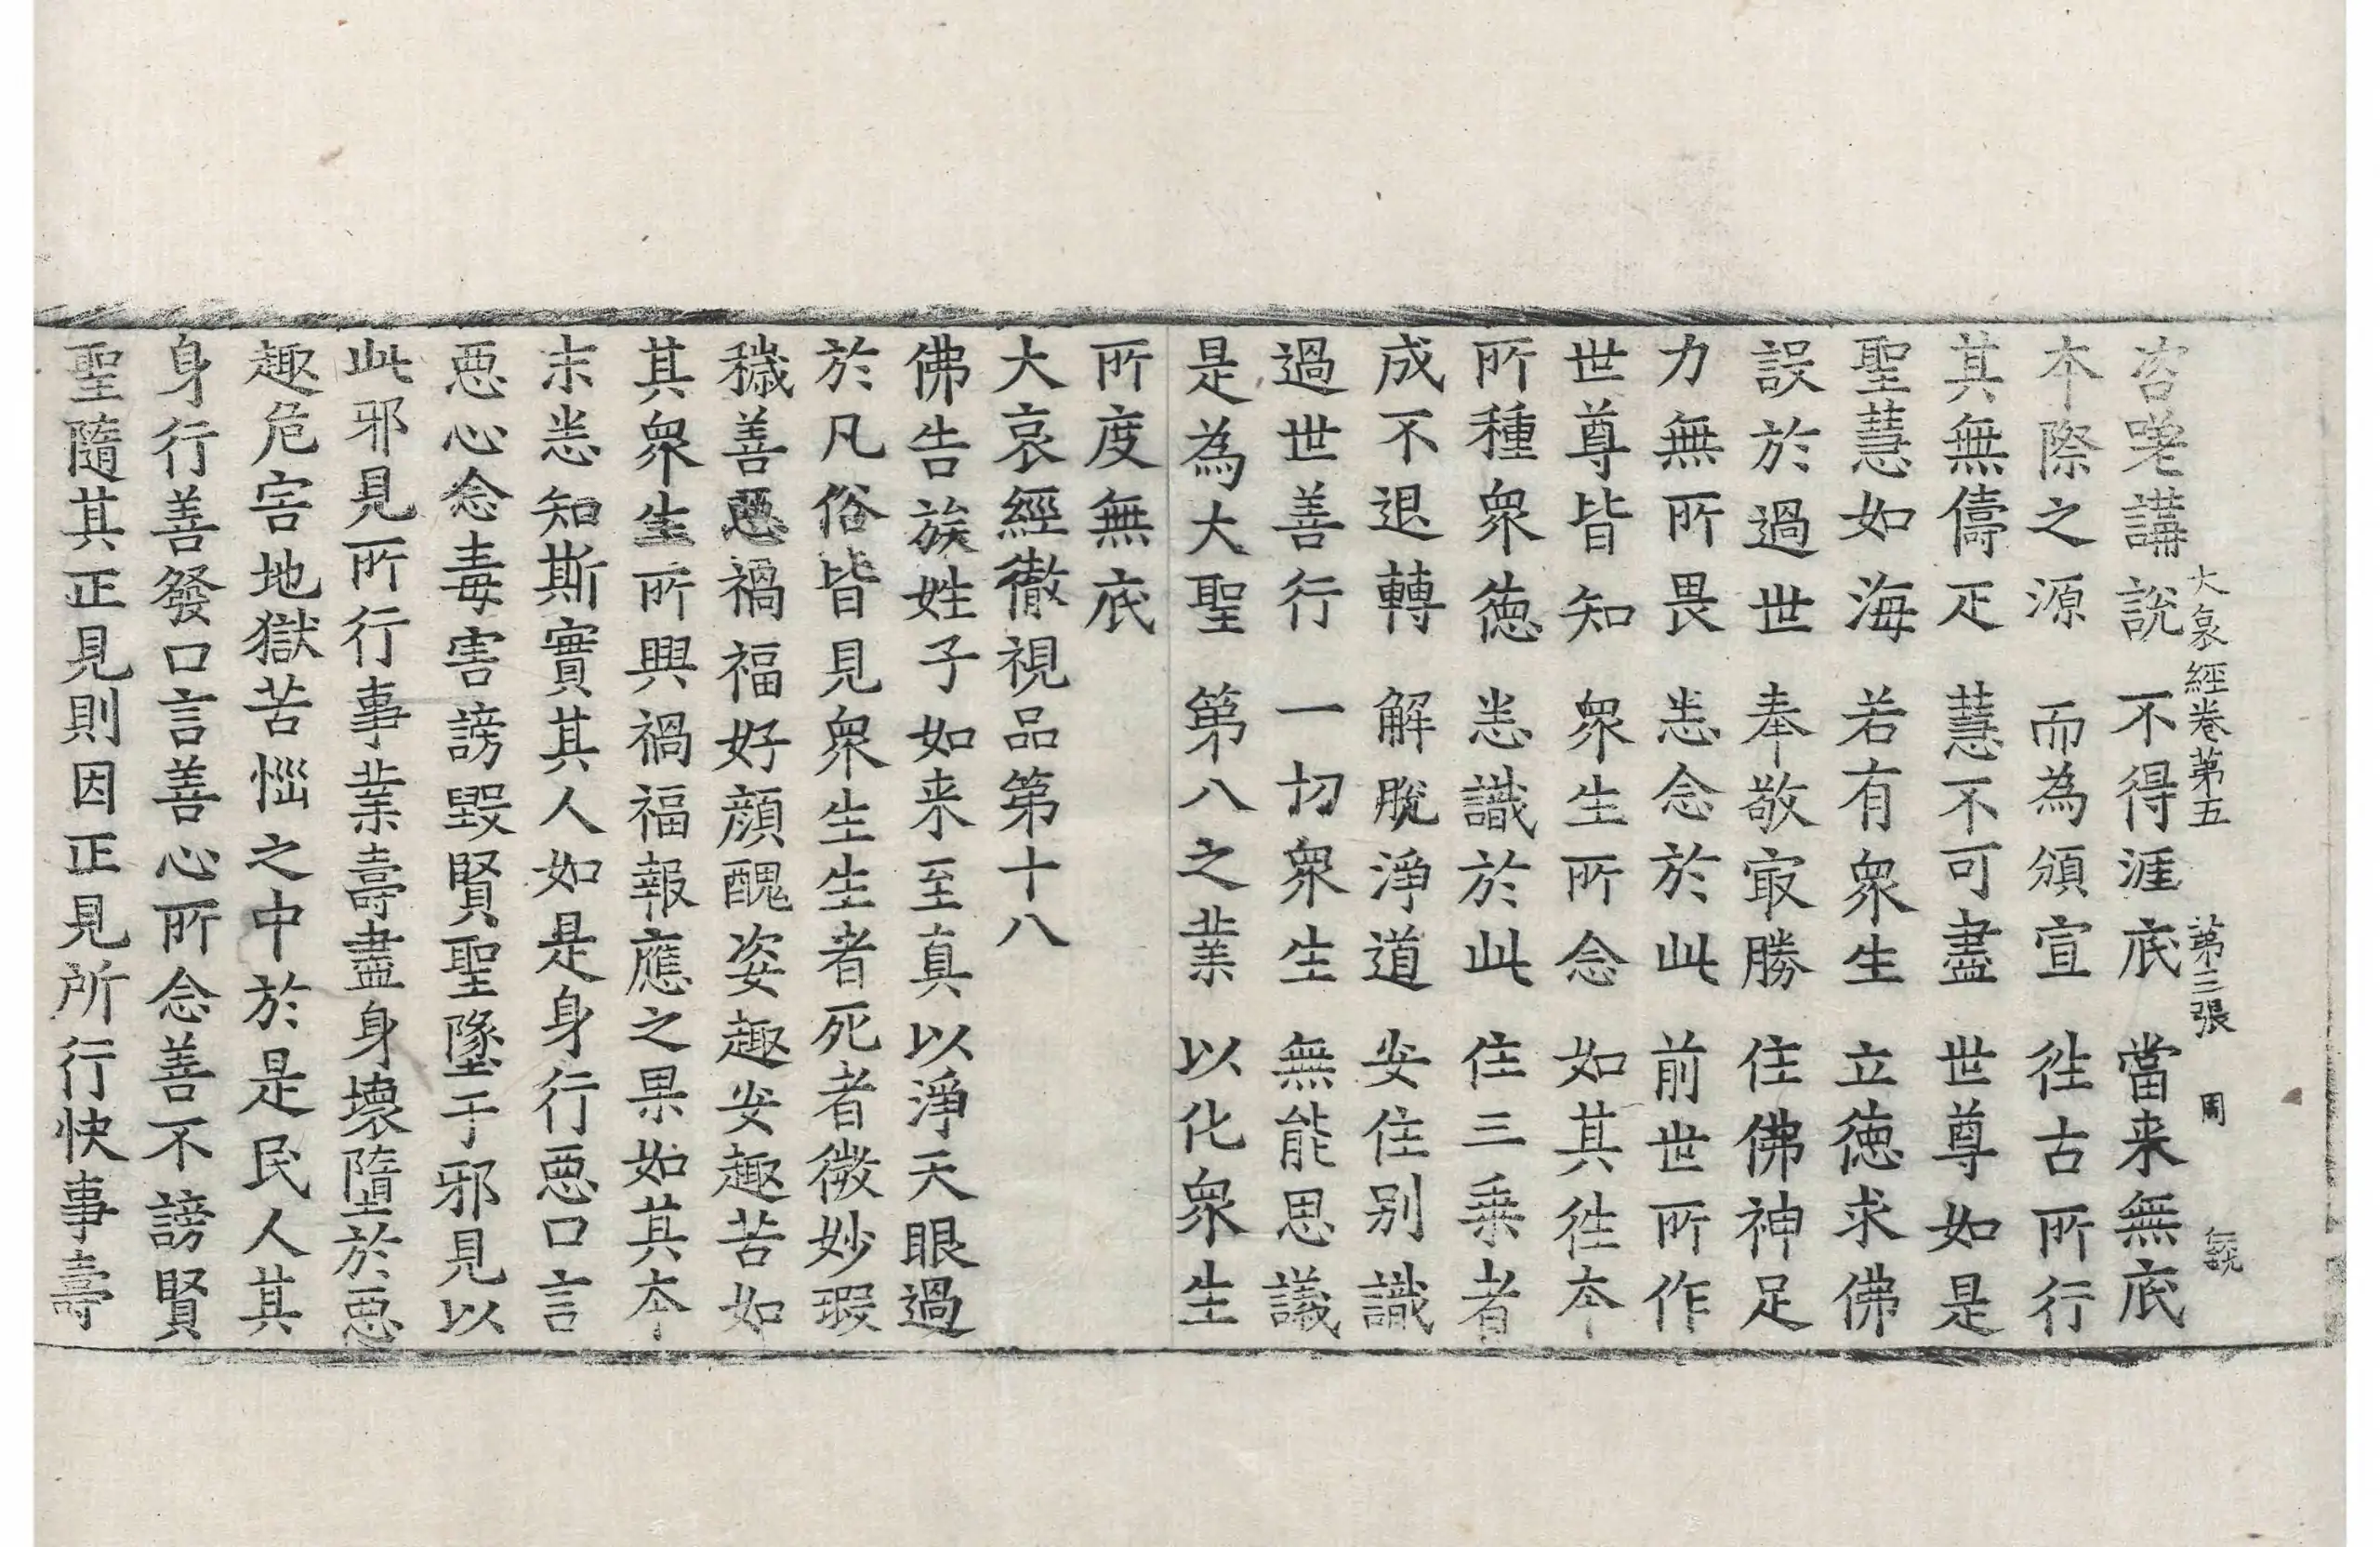 大哀經卷第五 第三張 周
咨嗟講說 不得涯底 當来無底
本際之源 而為頒宣 徃古所行
其無儔疋 慧不可盡 世尊如是
聖慧如海 若有衆生 立德求佛
設於過世 奉敬㝡勝 住佛神足
力無所畏 悉念於此 前世所作
世尊皆知 衆生所念 如其徃本
所種衆德 悉識於此 住三乗者
成不退轉 解脫淨道 安住别識
過世善行 一切衆生 無能思議
是為大聖 第八之業 以化衆生
所度無底
大哀經徹視品第十八
佛告族姓子如来至真以淨天眼過
於凡俗皆見衆生生者死者微妙瑕
穢善惡禍福好顔醜姿趣安趣苦如
其衆生所興禍福報應之果如其本
末悉知斯實其人如是身行惡口言
惡心念毒害謗毀賢聖墜于邪見以
此邪見所行事業壽盡身壞墮於惡
趣危害地獄苦惱之中於是民人其
身行善發口言善心所念善不謗賢
聖隨其正見則因正見所行快事壽